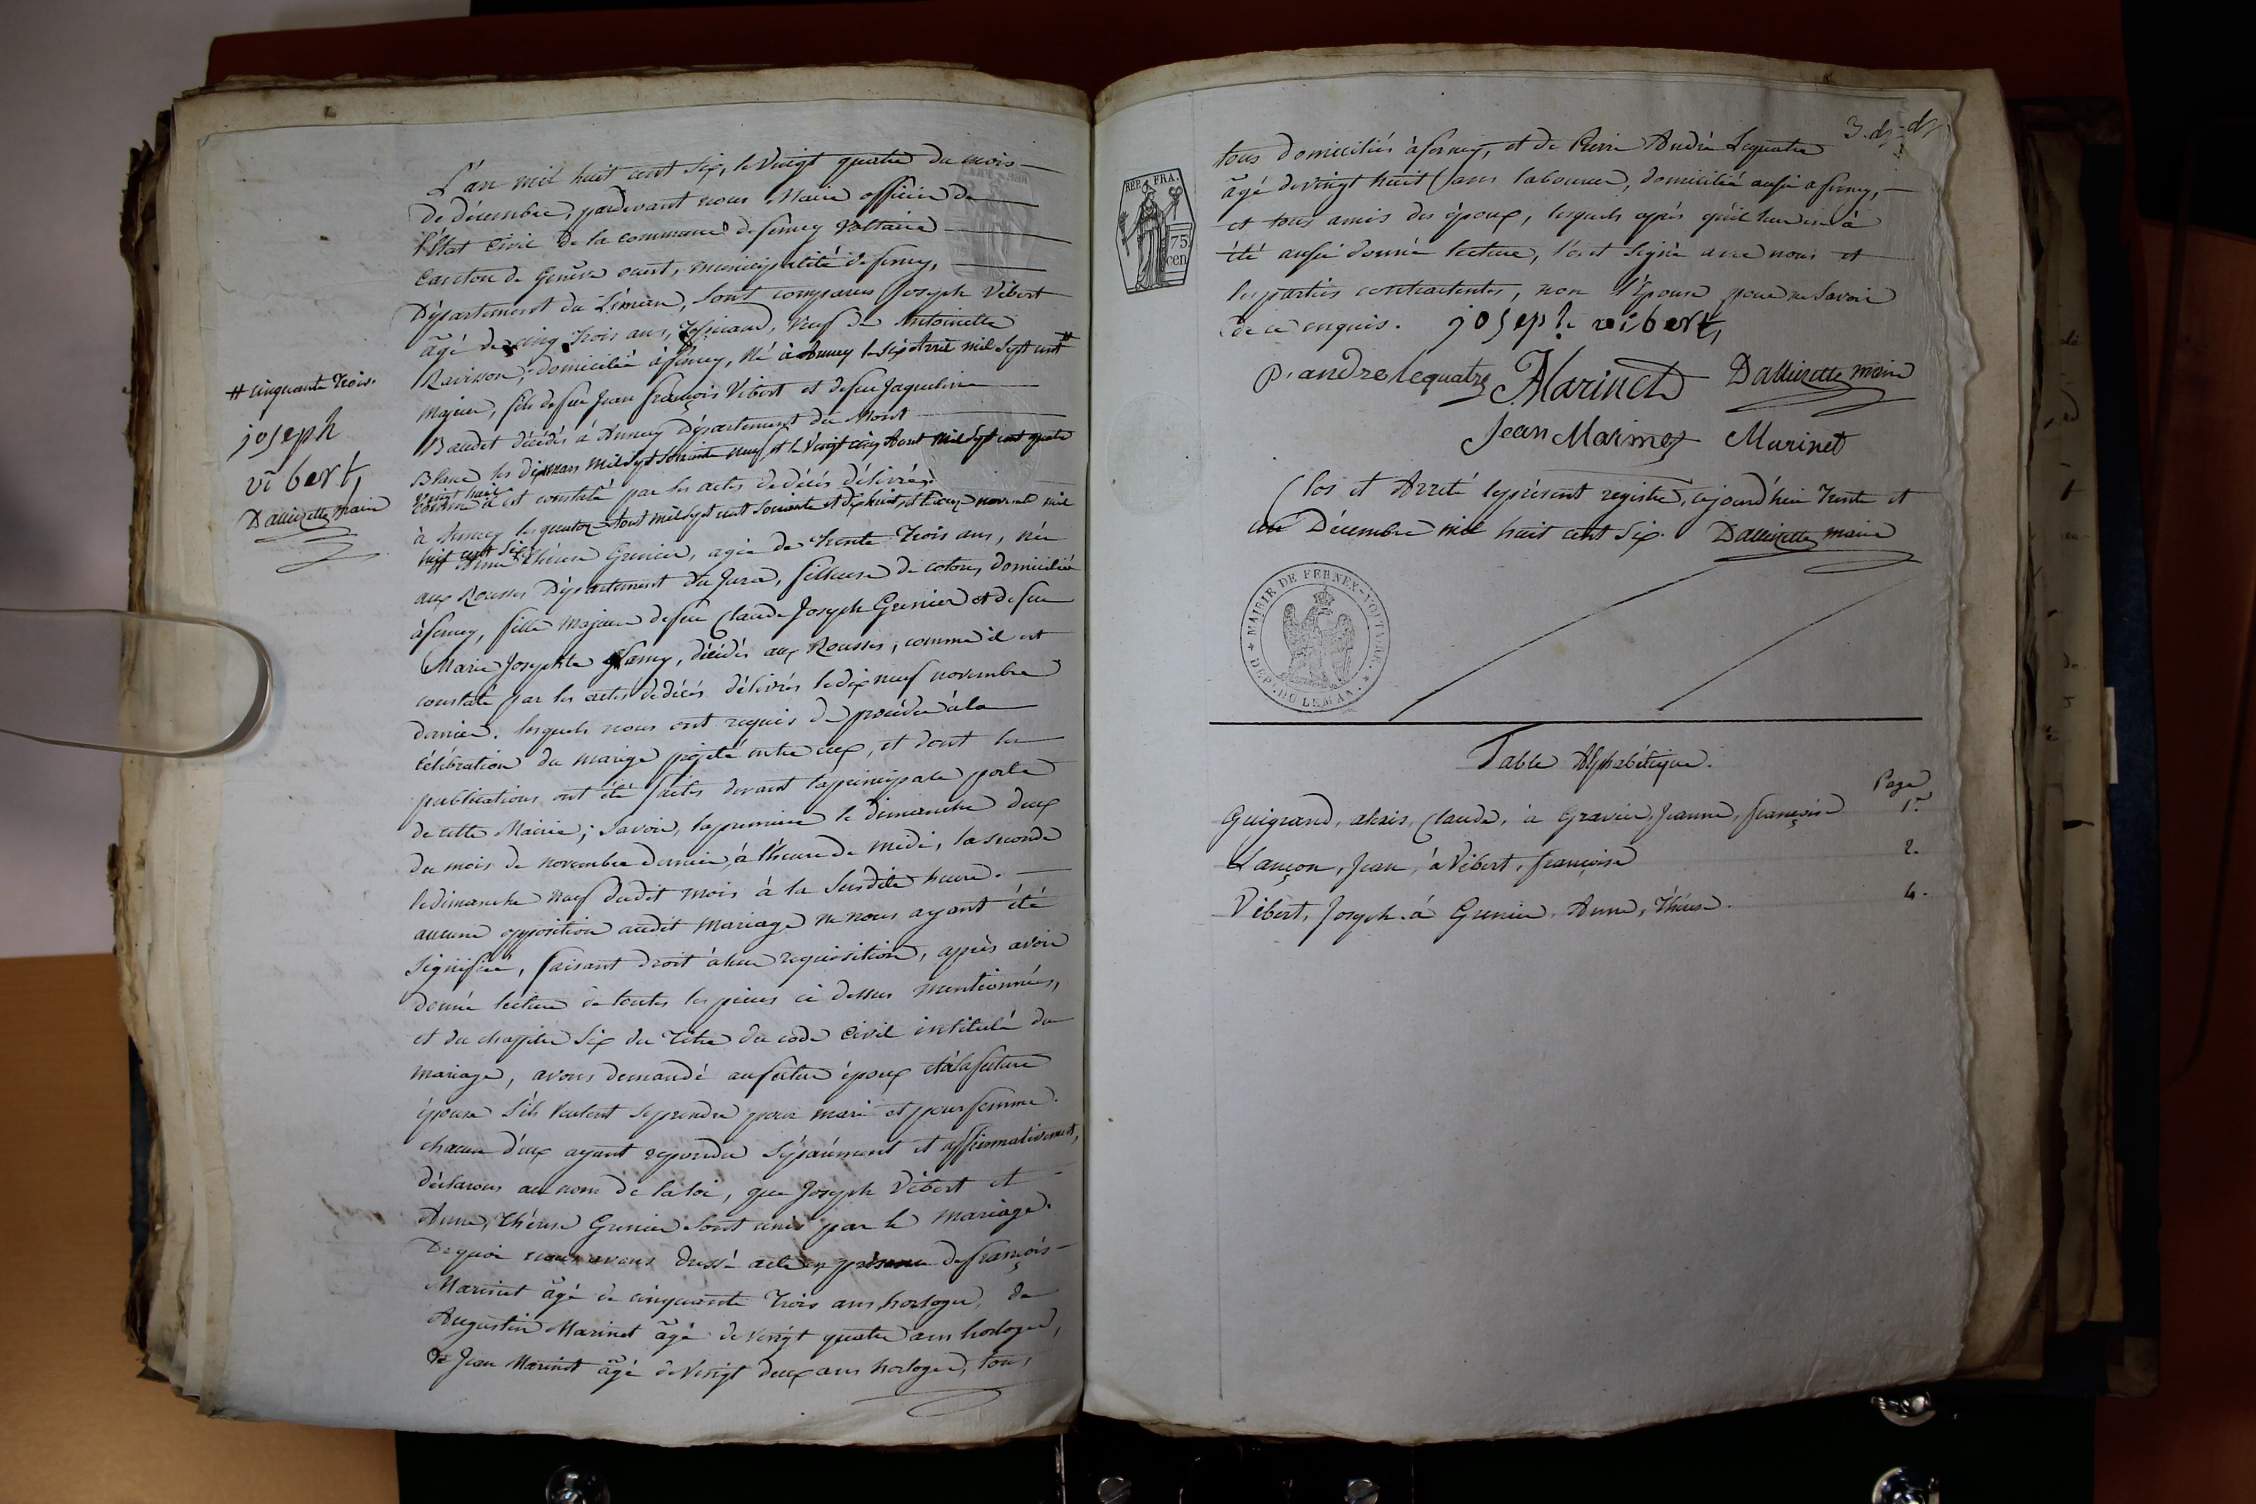 L'an mil huit cent six, le vingt quatre du mois
de décembre, pardevant nous Maire officier de
l'état Civil de la commune de ferney Voltaire
Canton de Genève ouest, municipalité de ferney,
Département du Léman, sont comparus Joseph Vibert
âgé de cinq trois ans, veuf de Antoinette
Ravisson, domicilié à ferney, Né à Annecy le six Avril mil sept cent #
# cinquante trois.
joseph
vibert,
Dallizette maire
Majeur, fils de feu Jean françois Vibert et de feu Jaqueline
Baudet décédés à Annecy Département du Mont
Blanc les dix mars mil sept soixante neuf, et le vingt cinq Aout mil sept cent quatre
vingt huit
comme il est constaté par les actes de décès délivrés
à Annecy le quatorze Aout mil sept cent soixante et dix huit et le onze novembre mil
huit cent six
Et Anne Thérese Grenier, agée de trente trois ans, née
aux Rousses Département du Jura, fileuse de coton, domiciliée
à ferney, fille majeure de feu Claude Joseph Grenier et de feue
Marie Josephte Lamy, décédés aux Rousses, comme il est
constaté par les actes de décès délivrés le dix neuf novembre
dernier. lesquels nous ont requis de procéder à la
célébration du mariage projeté entre eux, et dont les
publications ont été faites devant la principale porte
de cette Mairie; savoir, la premiere le dimanche deux
du mois de novembre dernier, à l'heure de midi, la seconde
le dimanche neuf dudit mois à la susdite heure.
aucune opposition audit mariage ne nous ayant été
signifiée, faisant droit à leur requisition, après avoir
donné lecture de toutes les pieces ci dessus mentionnées,
et du chapitre six du titre du code Civil intitulé du
mariage, avons demandé au futur époux et à la future
épouse s'ils veulent se prendre pour mari et pour femme.
chacun d'eux ayant repondu séparément et affirmativement,
déclarons au nom de la loi, que Joseph Vibert et
Anne, Thérese Grenier sont unis par le mariage.
De quoi nous avons dressé acte en présence de françois
Marinet âgé de cinquante trois ans, horloger, de
Augustin Marinet âgé de vingt quatre ans horloger,
de Jean Marinet âgé de vingt deux ans horloger, tous
tous domiciliés à ferney, et de Pierre André Lequatre
âgé de vingt huit ans laboureur, domicilié aussi a ferney,
et tous amis des époux, lesquels après qu'il leur en à
été aussi donné lecture, l'ont signé avec nous et
les parties contractantes, non l'épouse pour ne savoir
de ce enquis. joseph vibert,
REP. FRA.
75
cen
P. andre lequatre F Marinet Dallizette maire
Jean Marinet Marinet
Clos et Arreté le présent registre, cejourd'hui trente et
un Décembre mil huit cent six. Dallizette maire
MAIRIE DE FERNEX-VOLTAIRE.
DEP. DU LEMAN.
Table Alphabétique.
Page
Guigrand, alexis, Claude, à Gravier, Jeanne, françoise 1re
Lançon, Jean, à Vibert, françoise 2.
Vibert, Joseph. à Grenier, Anne, Thérese. 4.